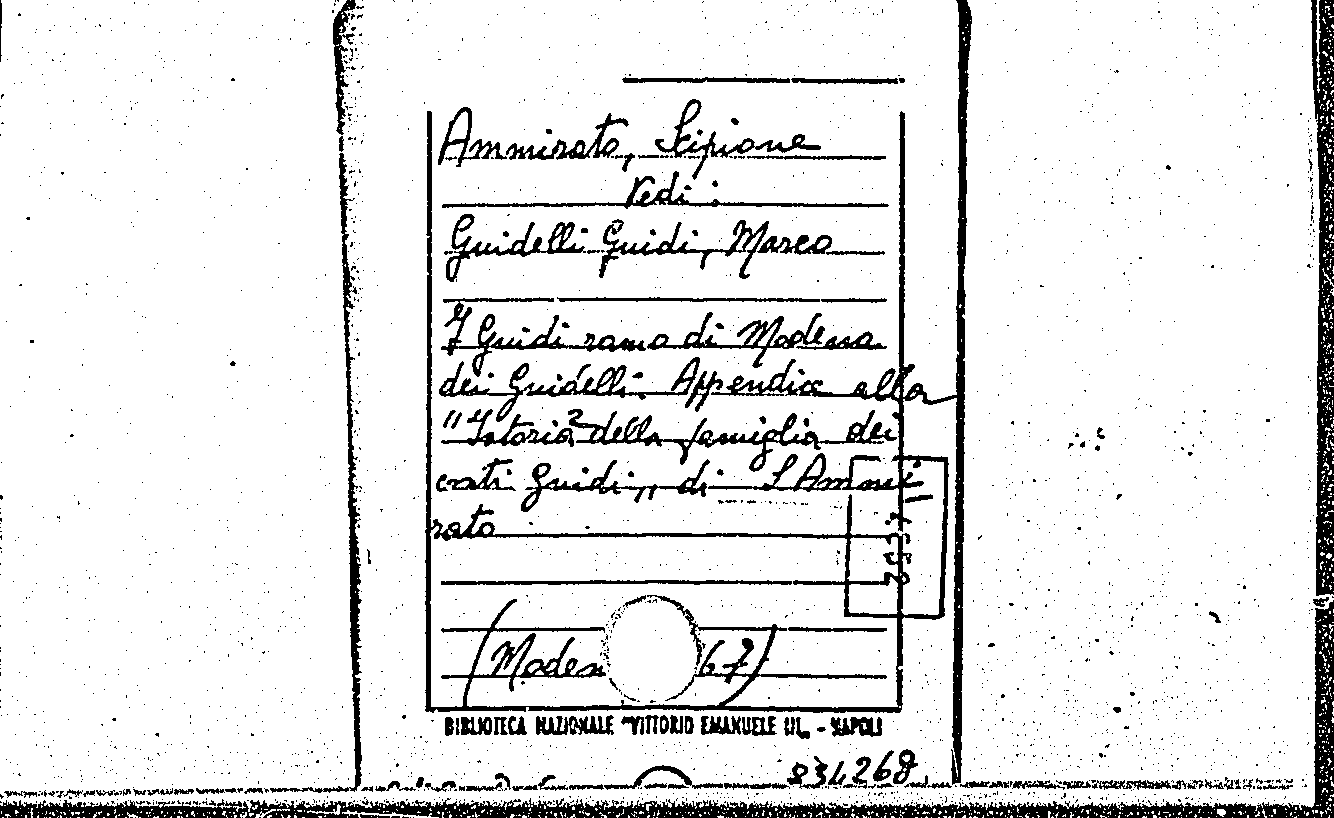 Ammirato, Scipione
Vedi :
Guidelli Guidi, Marco
I Guidi ramo di Modena
dei Guidelli. Appendice alla
"Istoria della famiglia dei
conti Guidi" di S Ammi
rato
(Moden 67)
BIBLIOTECA NAZIONALE "VITTORIO EMANUELE III" - NAPOLI
834268